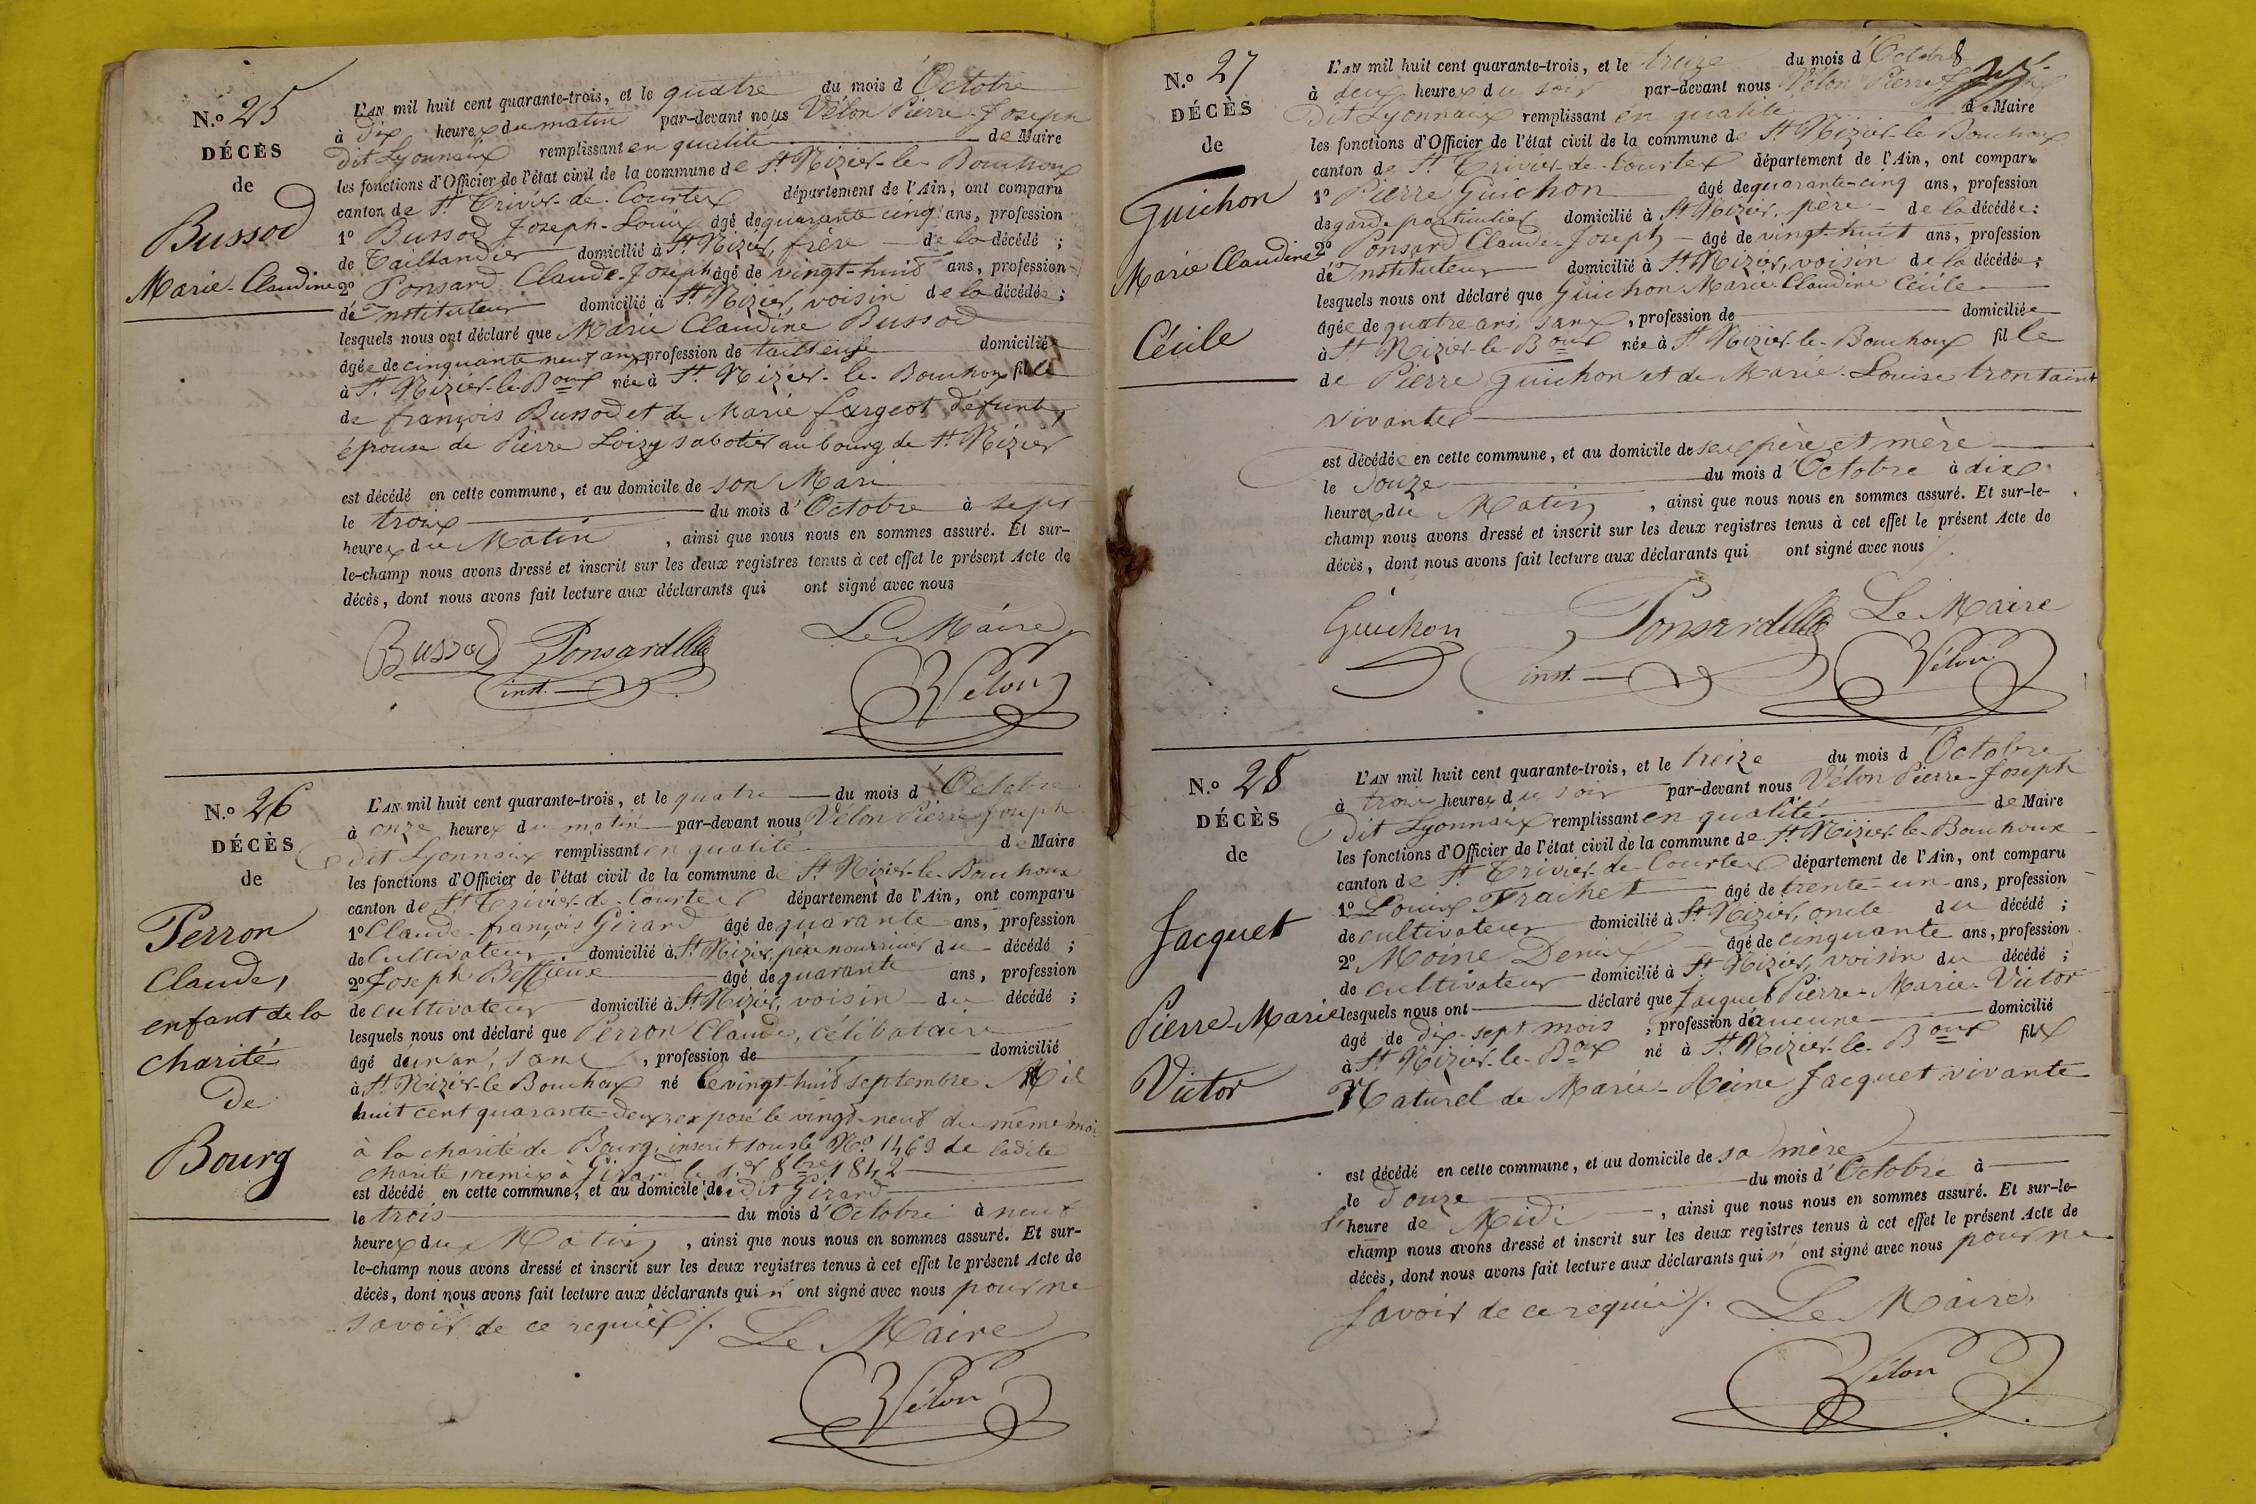 N.º 25
DÉCÈS
de
Bussod
Marie-Claudine
L'AN mil huit cent quarante-trois, et le quatre du mois d'Octobre
à dix heures du matin par-devant nous Vélon Pierre-Joseph
dit Lyonnaix remplissant en qualité de Maire
les fonctions d'Officier de l'état civil de la commune de St Nizier-le-Bouchoux
canton de St Trivier-de-Courtes département de l'Ain, ont comparu
1º Bussod Joseph-Louis âgé de quarante cinq ans, profession
de Taillandier domicilié à St Nizier, frère de la décédé ;
2º Ponsard Claude-Joseph âgé de vingt-huit ans, profession
de Instituteur domicilié à St Nizier, voisin de la décédée ;
lesquels nous ont déclaré que Marie Claudine Bussod
âgée de cinquante neuf ans profession de tailleuse domiciliée
à St Nizier-le-Boux née à St Nizier-le-Bouchoux fille
de françois Bussod et de Marie fargeot défunts,
épouse de Pierre Loizy sabotier au bourg de St Nizier
est décédé en cette commune, et au domicile de son Mari
le trois du mois d'Octobre à sept
heures du Matin , ainsi que nous nous en sommes assuré. Et sur-
le-champ nous avons dressé et inscrit sur les deux registres tenus à cet effet le présent Acte de
décès, dont nous avons fait lecture aux déclarants qui ont signé avec nous
Bussod Ponsard Le Maire
inst. Vélon
N.º 26
DÉCÈS
de
Perron
Claude,
enfant de la
charité
De
Bourg
L'AN mil huit cent quarante-trois, et le quatre du mois d'Octobre
à onze heures du matin par-devant nous Vélon Pierre Joseph
dit Lyonnaix remplissant en qualité de Maire
les fonctions d'Officier de l'état civil de la commune de St Nizier-le-Bouchoux
canton de St Trivier-de-Courtes département de l'Ain, ont comparu
1º Claude-françois Girard âgé de quarante ans, profession
de Cultivateur domicilié à St Nizier, père nourricier du décédé ;
2º Joseph Beffieux âgé de quarante ans, profession
de cultivateur domicilié à St Nizier, voisin du décédé ;
lesquels nous ont déclaré que Perron Claude, célibataire
âgé d'un an, sans , profession de domicilié
à St Nizier-le Bouchoux né le vingt-huit septembre Mil
huit cent quarante-deux, exposé le vingt-neuf du même moi
à la charité de Bourg, inscrit sous le Nº 1469 de ladite
charité, remis à Girard le 1er 8bre 1842
est décédé en cette commune, et au domicile dudit Girard
le trois du mois d'Octobre à neuf
heures du Matin , ainsi que nous nous en sommes assuré. Et sur-
le-champ nous avons dressé et inscrit sur les deux registres tenus à cet effet le présent Acte de
décès, dont nous avons fait lecture aux déclarants qui n'ont signé avec nous pour ne
savoir de ce requis /. Le Maire
Vélon
N.º 27
DÉCÈS
de
Guichon
Marie Claudine
Cécile
L'AN mil huit cent quarante-trois, et le treize du mois d'Octobre
à deux heures du soir par-devant nous Vélon Pierre
dit Lyonnaux remplissant en qualité de Maire
les fonctions d'Officier de l'état civil de la commune de St Nizier-le-Bouchoux
canton de St Trivier-de-Courtes département de l'Ain, ont comparu
1º Pierre Guichon âgé de quarante-cinq ans, profession
de garde particulier domicilié à St Nizier, père de la décédée ;
2º Ponsard Claude-Joseph âgé de vingt-huit ans, profession
de Instituteur domicilié à St Nizier, voisin de la décédée ;
lesquels nous ont déclaré que Guichon Marie-Claudine Cécile
âgée de quatre ans, sans , profession de domiciliée
à St Nizier-le-Boux née à St Nizier-le-Bouchoux fille
de Pierre Guichon et de Marie-Louise trontaint
vivantes
est décédée en cette commune, et au domicile de ses père et mère
le Douze du mois d'Octobre à dix
heures du Matin , ainsi que nous nous en sommes assuré. Et sur-le-
champ nous avons dressé et inscrit sur les deux registres tenus à cet effet le présent Acte de
décès, dont nous avons fait lecture aux déclarants qui ont signé avec nous /.
Guichon Ponsard Le Maire
inst. Vélon
N.º 28
DÉCÈS
de
Jacquet
Pierre-Marie
Victor
L'AN mil huit cent quarante-trois, et le treize du mois d'Octobre
à trois heures du soir par-devant nous Vélon Pierre-Joseph
dit Lyonnaix remplissant en qualité de Maire
les fonctions d'Officier de l'état civil de la commune de St Nizier-le-Bouchoux
canton de St Trivier-de-Courtes département de l'Ain, ont comparu
1º Louis Fraichet âgé de trente-un ans, profession
de cultivateur domicilié à St Nizier, oncle du décédé ;
2º Moine Denis âgé de cinquante ans, profession
de cultivateur domicilié à St Nizier, voisin du décédé ;
lesquels nous ont déclaré que Jacquet Pierre-Marie-Victor
âgé de dix-sept mois , profession d'aucune domicilié
à St Nizier-le-Boux né à St Nizier-le-Boux fils
Naturel de Marie-Reine Jacquet vivante
est décédé en cette commune, et au domicile de sa mère
le douze du mois d'Octobre à
l'heure de Midi , ainsi que nous nous en sommes assuré. Et sur-le-
champ nous avons dressé et inscrit sur les deux registres tenus à cet effet le présent Acte de
décès, dont nous avons fait lecture aux déclarants qui n'ont signé avec nous pour ne
savoir de ce requis /. Le Maire
Vélon